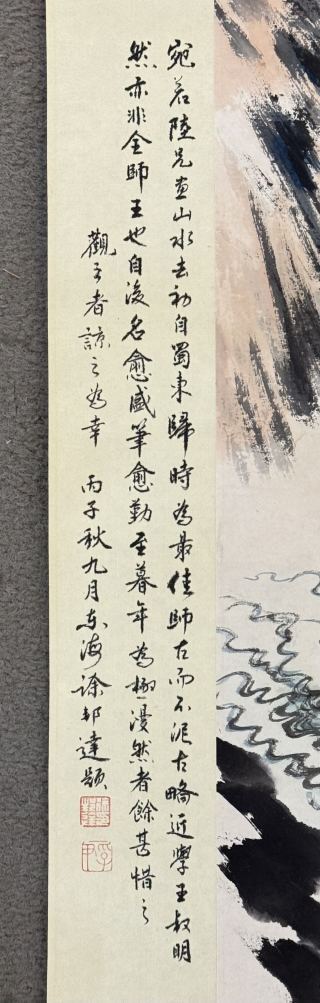 宛若陸兄畫山水去初自蜀東歸時為最佳師古而不泥古略近學王叔明
然亦非全師王也自後名愈盛筆愈勤至暮年為極漫然者餘甚惜之
觀予者諒之為幸 丙子秋九月東海徐邦達題